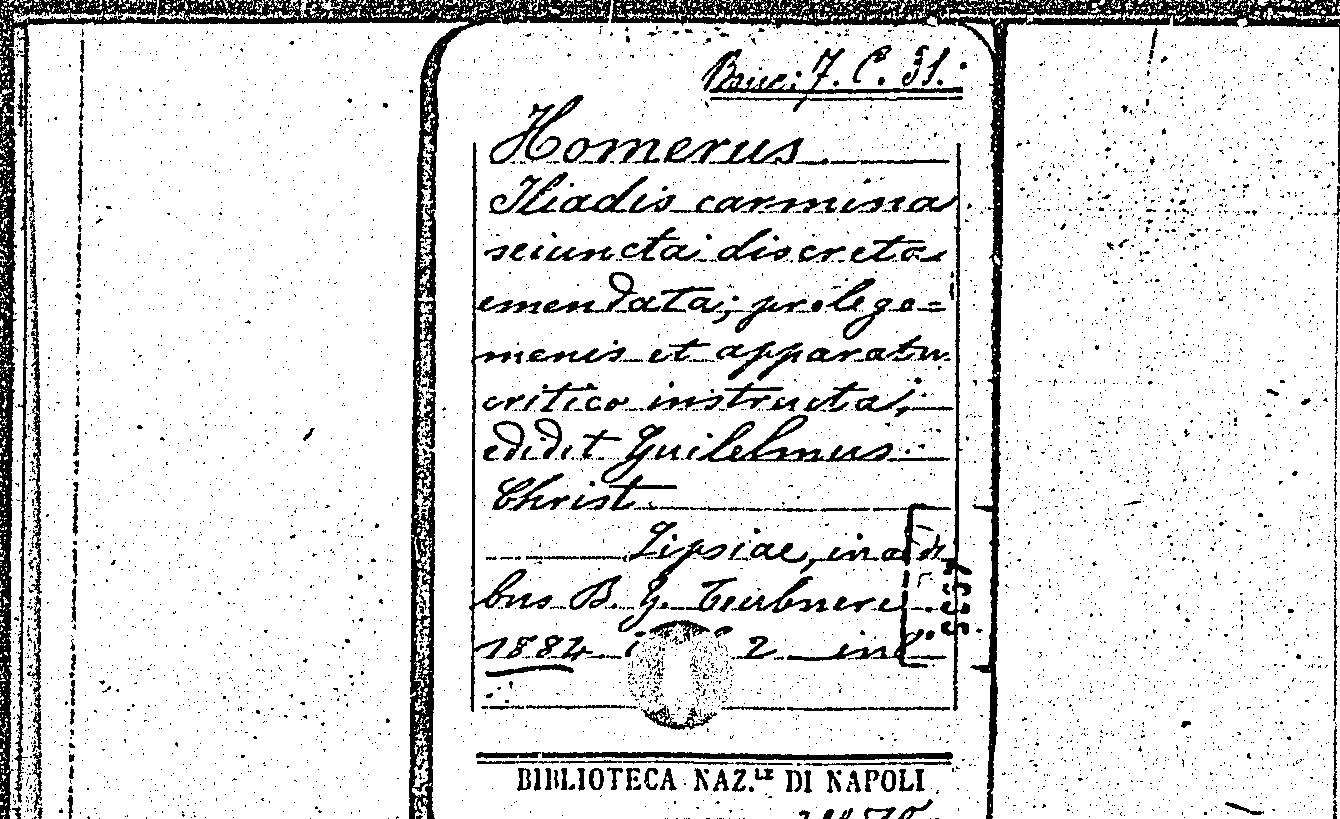 Bruc. 7. C. 31.
Homerus
Iliadis carmina
seiuncta discreta
emendata; prolego=
menis et apparatu
critico instructa;
edidit Guilelmus
Christ.
Lipsiae, in aedi
bus B. G. Teubneri
1884 2 in 8°
BIBLIOTECA NAZ.LE DI NAPOLI